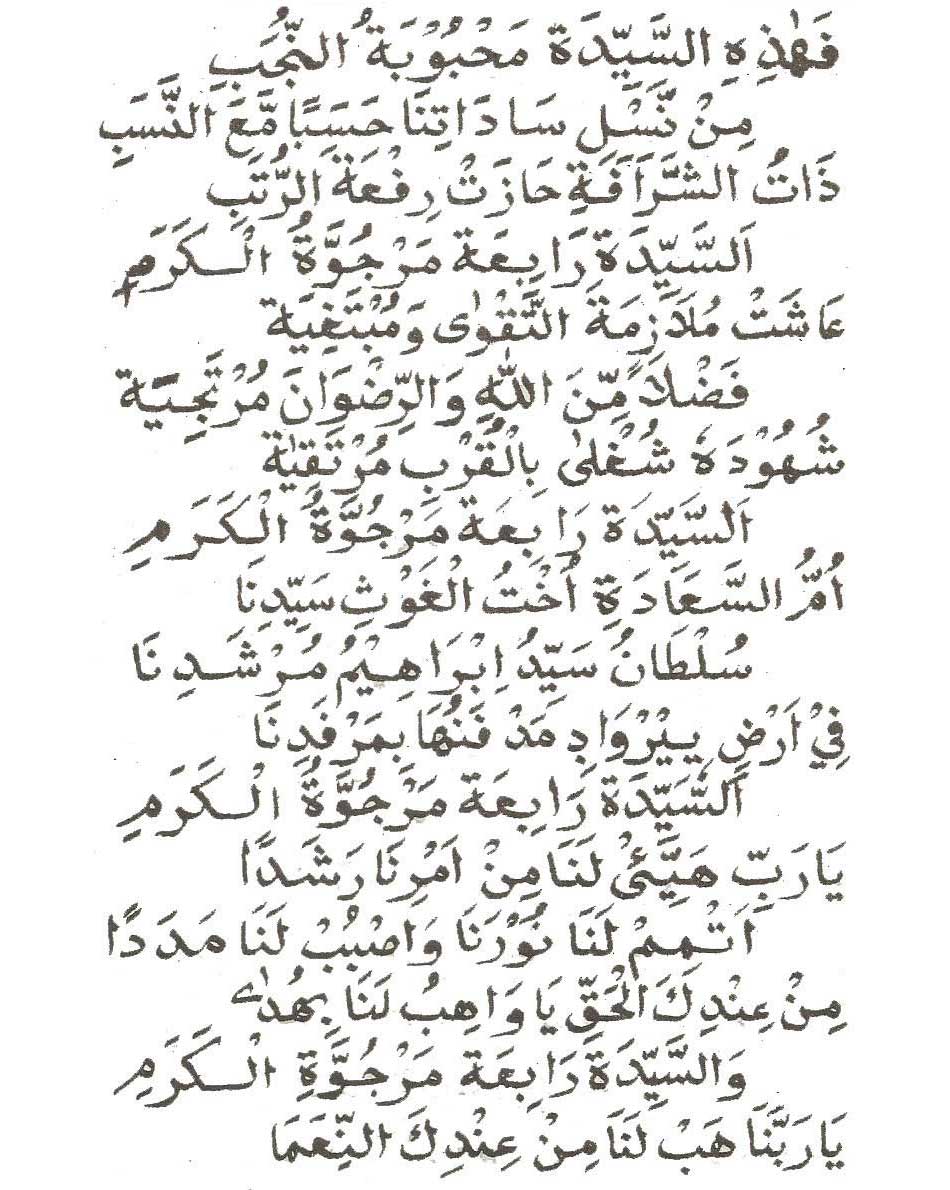 فَهٰذِهِ السَّيِّدَةُ مَحْبُوْبَةُ النُّجُبِ
مِنْ نَّسْلِ سَادَاتِنَا حَسَبًا مَّعَ النَّسَبِ
ذَاتُ الشَّرَافَةِ حَازَتْ رِفْعَةَ الرُّتَبِ
اَلسَّيِّدَةُ رَابِعَة مَرْجُوَّةُ الْكَرَمِ
عَاشَتْ مُلَازِمَةَ التَّقْوٰى وَمُبْتَغِيَة
فَضْلًا مِّنَ اللّٰهِ وَالرِّضْوَانَ مُرْتَجِيَة
شُهُوْدَهٗ شُغْلٰى بِالْقُرْبِ مُرْتَقِيَة
اَلسَّيِّدَة رَابِعَة مَرْجُوَّةُ الْكَرَمِ
اُمُّ السَّعَادَةِ اُخْتُ الْغَوْثِ سَيِّدِنَا
سُلْطَانُ سَيِّدُ اِبْرَاهِيْمُ مُرْشَدِنَا
فِيْ اَرْضِ يِيْرْوَادِ مَدْفَنُهَا بِمَرْفَدِنَا
اَلسَّيِّدَةُ رَابِعَة مَرْجُوَّةُ الْكَرَمِ
يَارَبِّ هَيِّئْ لَنَا مِنْ اَمْرِنَا رَشَدًا
اَتْمِمْ لَنَا نُوْرَنَا وَاصْبُبْ لَنَا مَدَدًا
مِنْ عِنْدِكَ الْحَقِّ يَا وَاهِبُ لَنَا بِهُدٰى
وَالسَّيِّدَةُ رَابِعَة مَرْجُوَّةِ الْكَرَمِ
يَارَبَّنَا هَبْ لَنَا مِنْ عِنْدِكَ النِّعَمَا